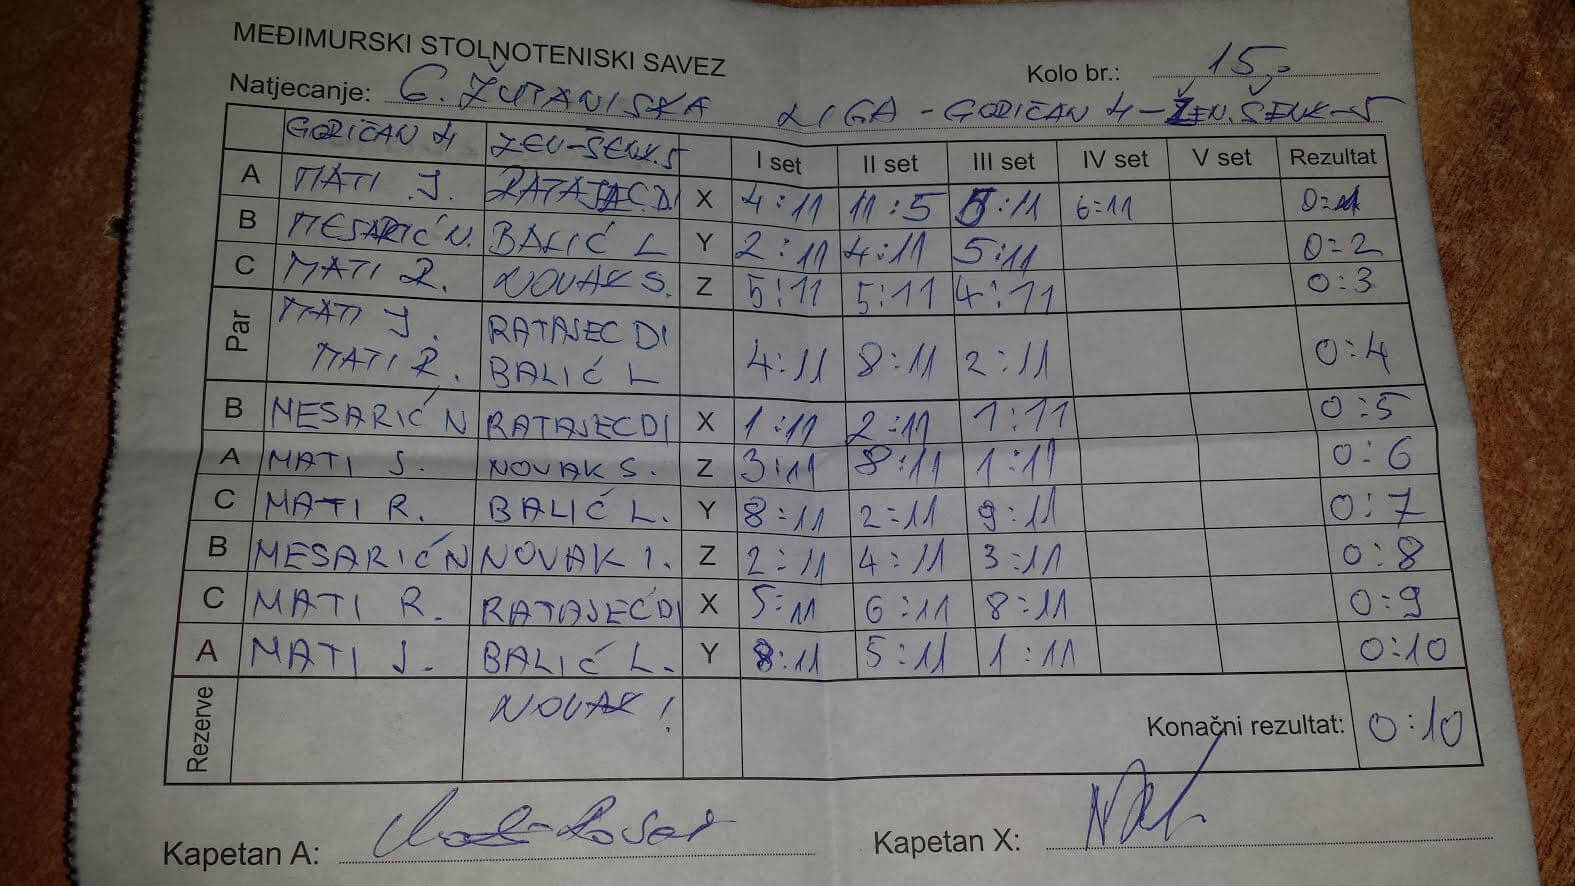 MEĐIMURSKI STOLNOTENISKI SAVEZ
Kolo br.: 15.
Natjecanje: 6. ŽUPANIJSKA LIGA - GORIČAN 4 - ŽEN. ŠENK - 5
GORIČAN 4 ŽEN-ŠENK. 5 I set II set III set IV set V set Rezultat
A MATI J. RATAJEC.DI X 4:11 11:5 5:11 6:11 0:1
B MESARIĆ N. BALIĆ L Y 2:11 4:11 5:11 0:2
C MATI R. NOVAK S. Z 5:11 5:11 4:11 0:3
Par MATI J. RATAJEC DI
MATI R. BALIĆ L 4:11 8:11 2:11 0:4
B MESARIĆ N RATAJEC DI X 1:11 2:11 1:11 0:5
A MATI J. NOVAK S. Z 3:11 8:11 1:11 0:6
C MATI R. BALIĆ L. Y 8:11 2:11 9:11 0:7
B MESARIĆ N NOVAK I. Z 2:11 4:11 3:11 0:8
C MATI R. RATAJEC DI X 5:11 6:11 8:11 0:9
A MATI J. BALIĆ L. Y 8:11 5:11 1:11 0:10
Rezerve NOVAK I
Konačni rezultat: 0:10
Kapetan A: Kapetan X: